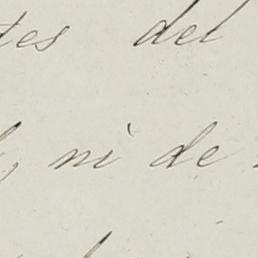 tes del
, ni de